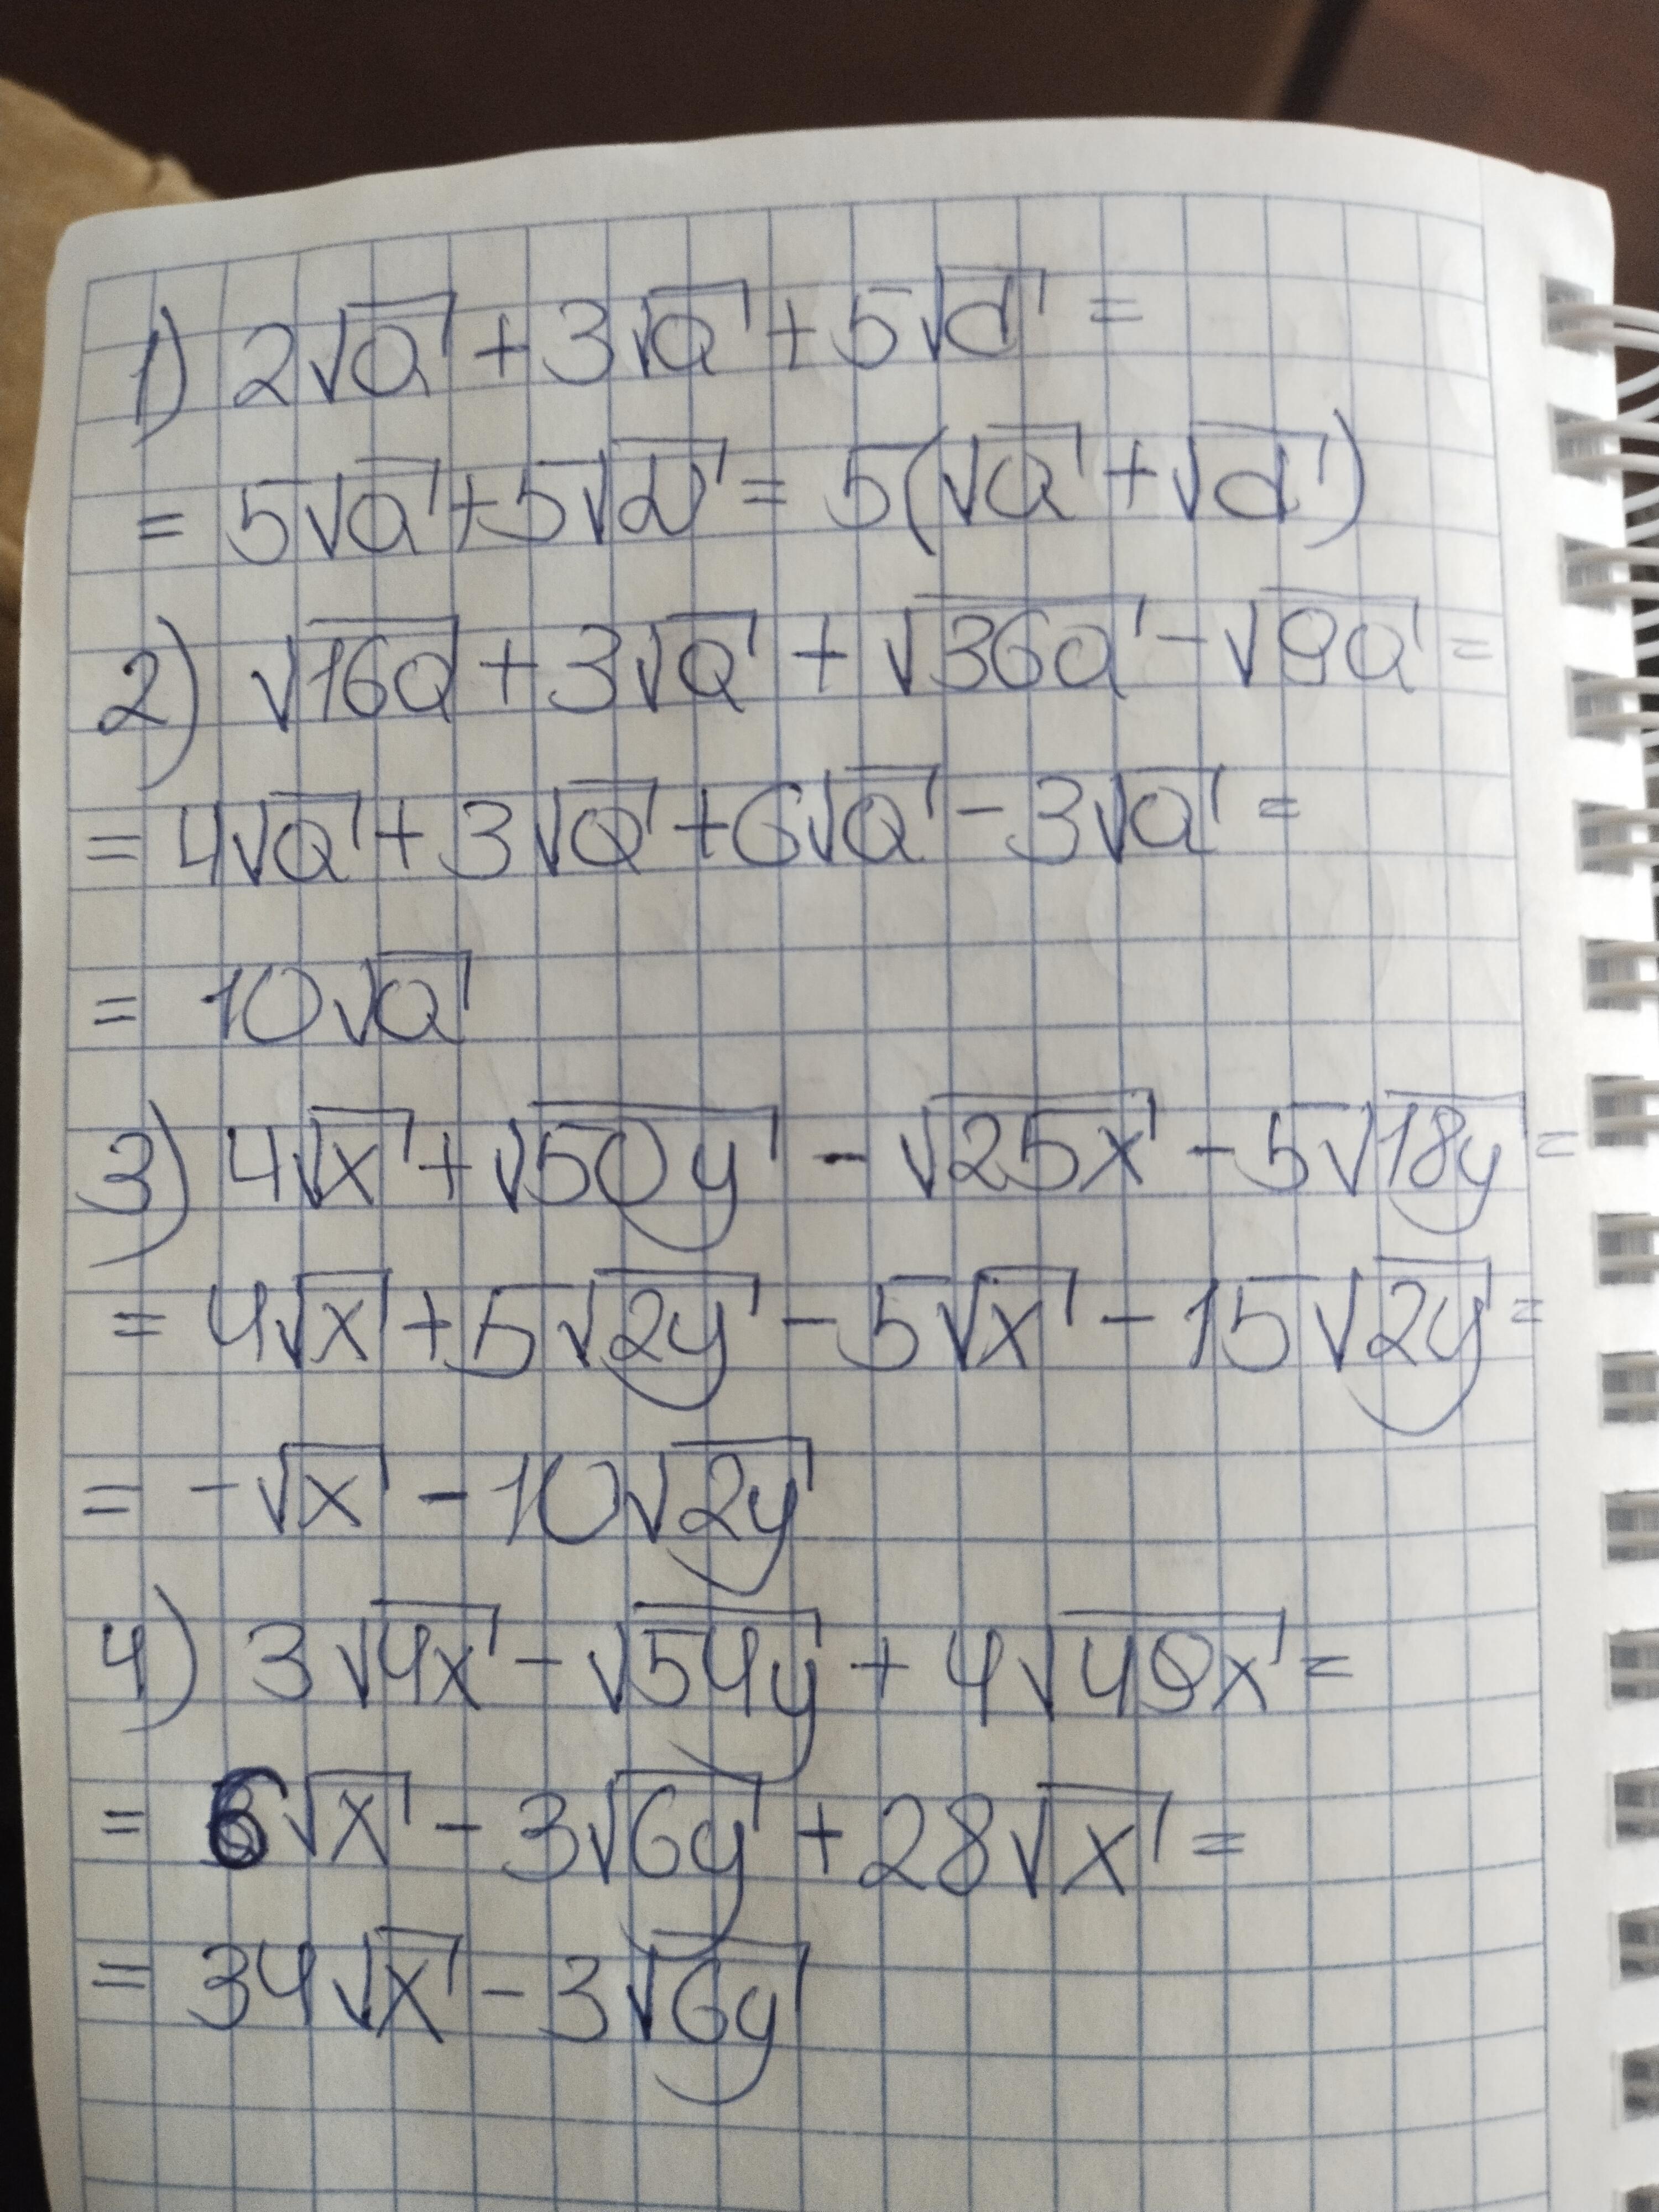 1) 2√a + 3√a + 5√d =
= 5√a + 5√d = 5(√a + √d)
2) √16a + 3√a + √36a - √9a =
= 4√a + 3√a + 6√a - 3√a =
= 10√a
3) 4√x + √50y - √25x - 5√18y =
= 4√x + 5√2y - 5√x - 15√2y =
= -√x - 10√2y
4) 3√4x - √54y + 4√49x =
= 6√x - 3√6y + 28√x =
= 34√x - 3√6y